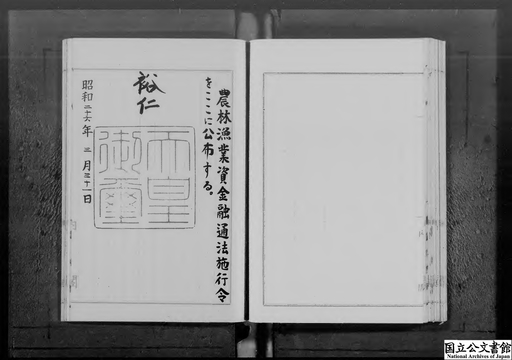 農林漁業資金融通法施行令
をここに公布する。
裕仁
天皇
御璽
昭和二十六年三月三十一日
国立公文書館
National Archives of Japan